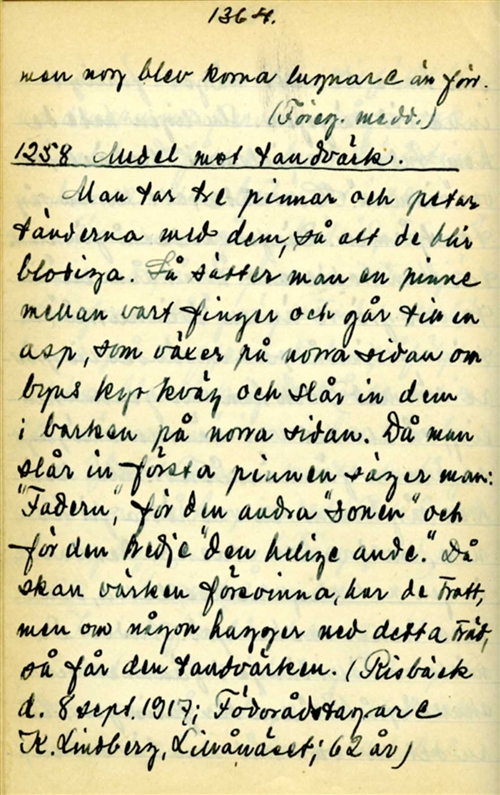 1364.
men nog blev korna lugnare än förr.
(Föreg. medd.)
1258 Medel mot tandvärk.
Man tar tre pinnar och petar
tänderna med dem, så att de blir
blodiga. Så sätter man en pinne
mellan vart finger och går till en
asp, som växer på norra sidan om
byns kyrkväg och slår in dem
i barken på norra sidan. Då man
slår in första pinnen säger man:
"Fadern", för den andra "sonen" och
för den tredje "den helige ande." Då
skall värken försvinna, har de trott,
men om någon hugger ned detta träd,
så får den tandvärken. (Risbäck
d. 8 sept. 1917; Födorådstagare
K. Lindberg, Lillvånäset; 62 år)